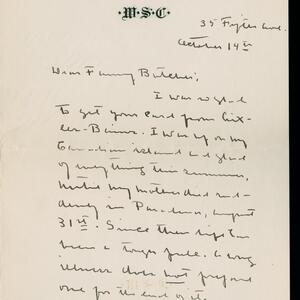 W·S·C·
35 Fifth Ave.
October 14th
Dear Fanny Butcher,
I was so glad
to get your card from Aix-
les-Bains. I was up on my
Canadian island and glad
of everything this summer,
until my mother died sud-
denly in Pasadena, August
31st. Since then life has
been a tough pull. A long
illness does not prepare
one for the end of it.